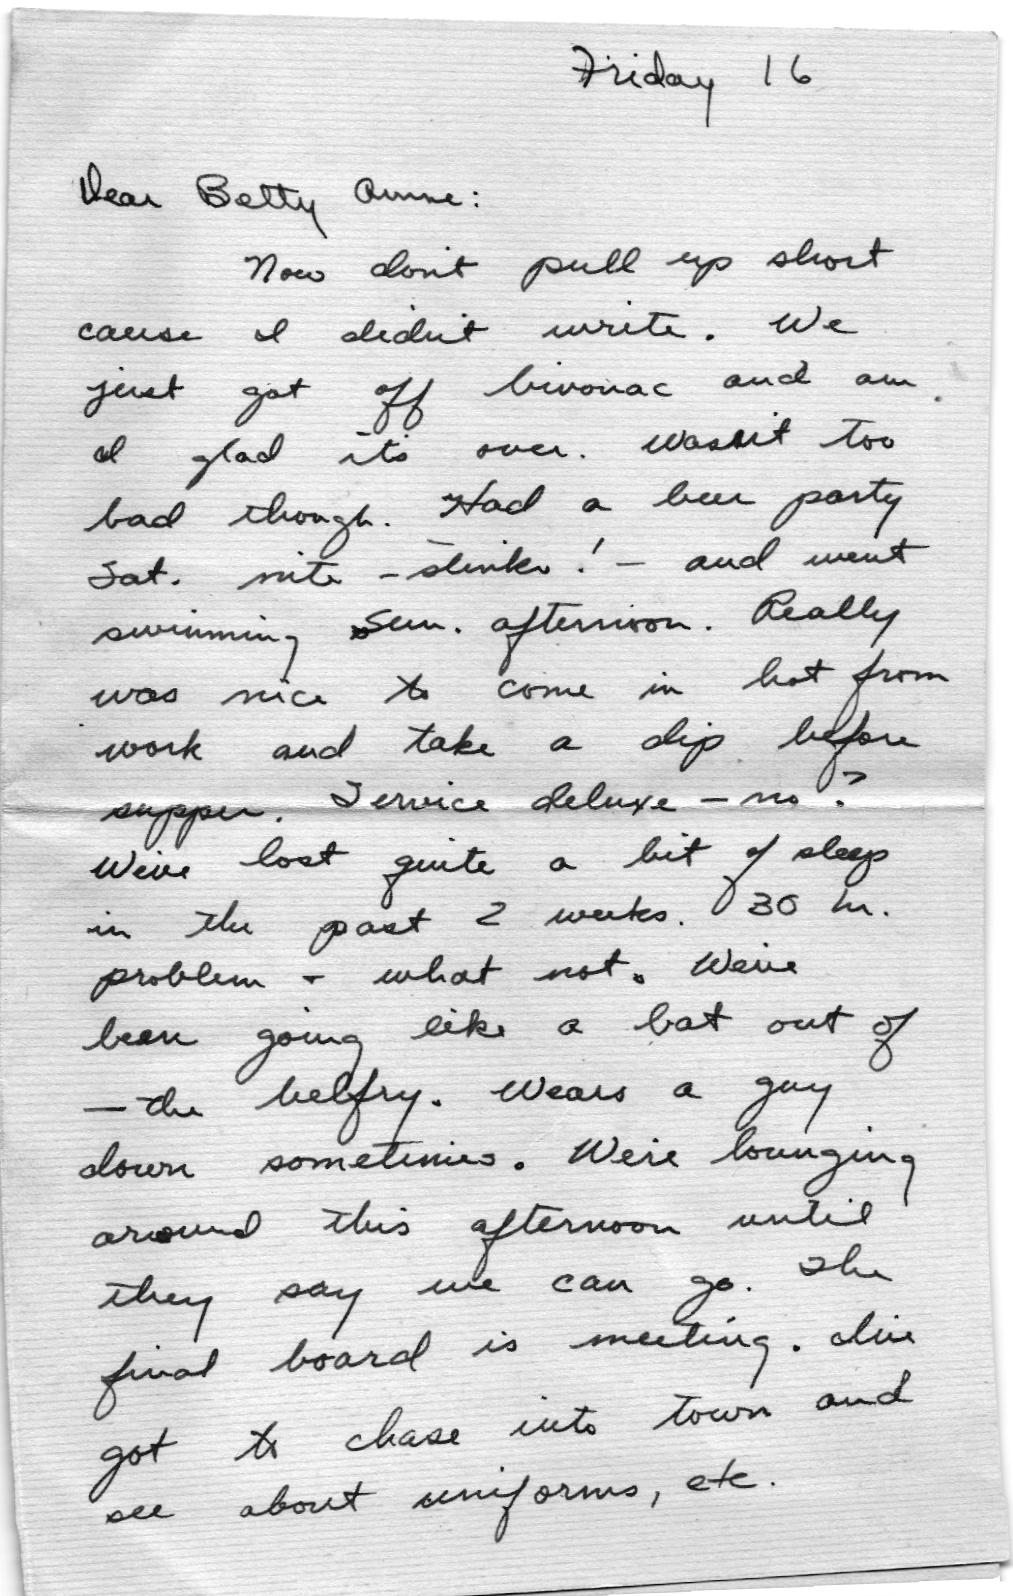 Friday 16
Dear Betty Anne:
Now don't pull up short
cause I didn't write. We
just got off bivouac and am
I glad it's over. Wasn't too
bad though. Had a beer party
Sat. nite – stinko! – and went
swimming Sun. afternoon. Really
was nice to come in hot from
work and take a dip before
supper. Service deluxe – no?
We've lost quite a bit of sleep
in the past 2 weeks. 30 hr.
problem + what not. We've
been going like a bat out of
— the belfry. Wears a guy
down sometimes. We're lounging
around this afternoon until
they say we can go. The
final board is meeting. I've
got to chase into town and
see about uniforms, etc.